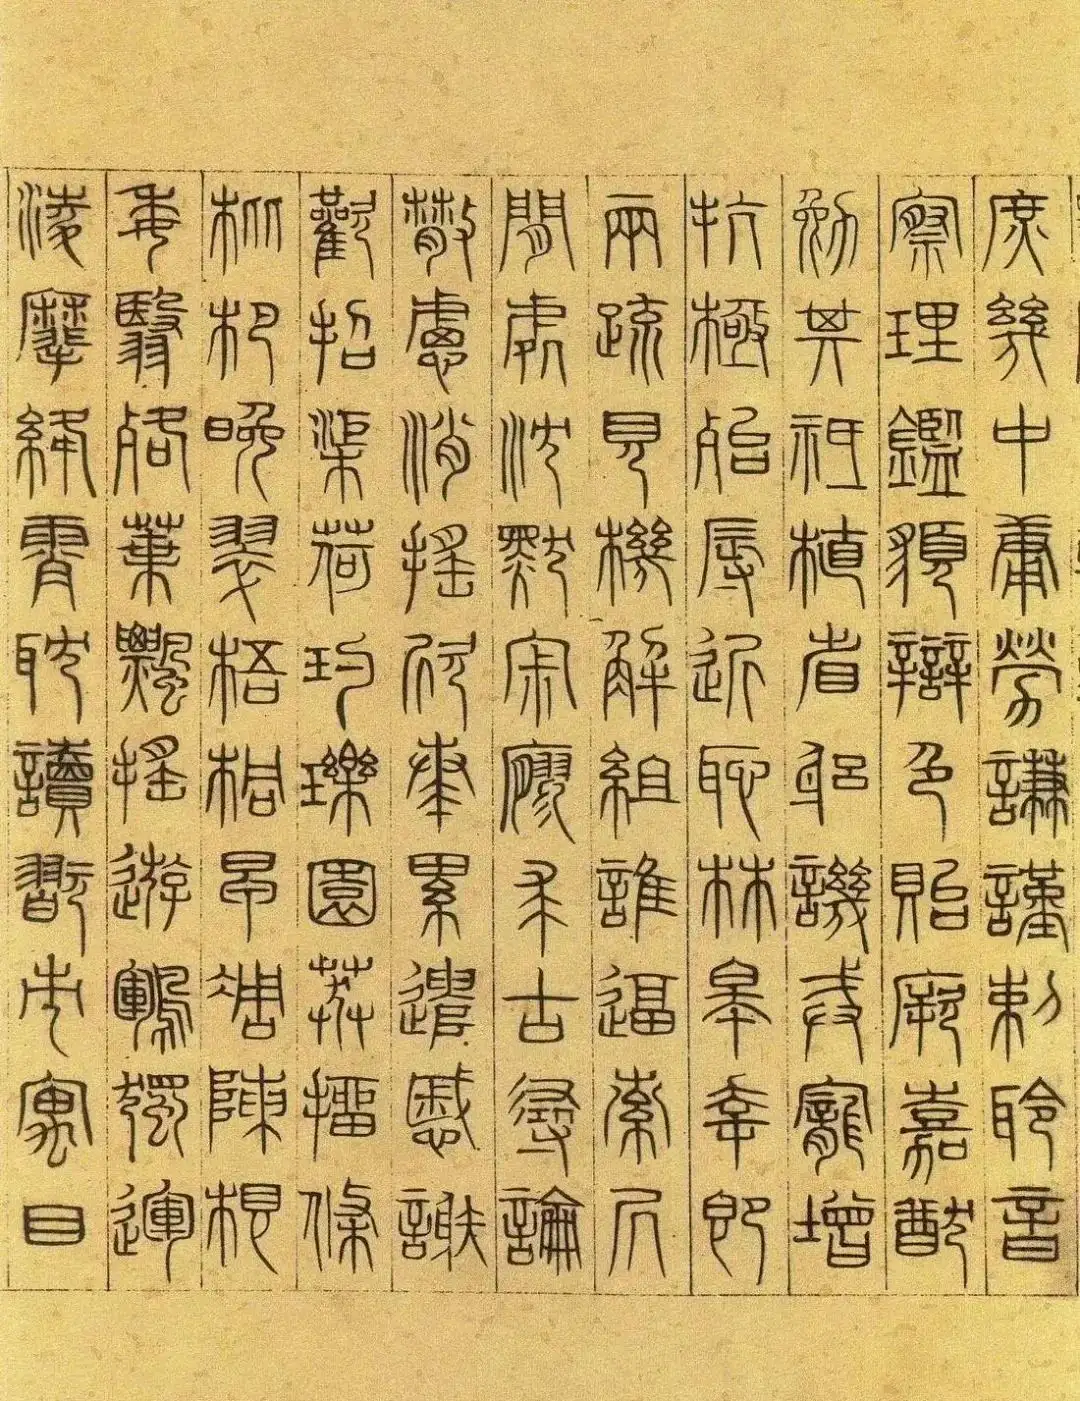 庶幾中庸勞謙謹敕聆音
察理鑑貌辯色貽厥嘉猷
勉其祗植省躬譏誡寵增
抗極殆辱近恥林皋幸即
兩疏見機解組誰逼索居
閒處沈默寂寥求古尋論
散慮消搖欣奏累遣慼謝
歡招渠荷玓瓅園莽抽條
枇杷晚翠梧桐早凋陳根
委翳落葉飄搖遊鵾獨運
淩摩絳霄耽讀翫市寓目